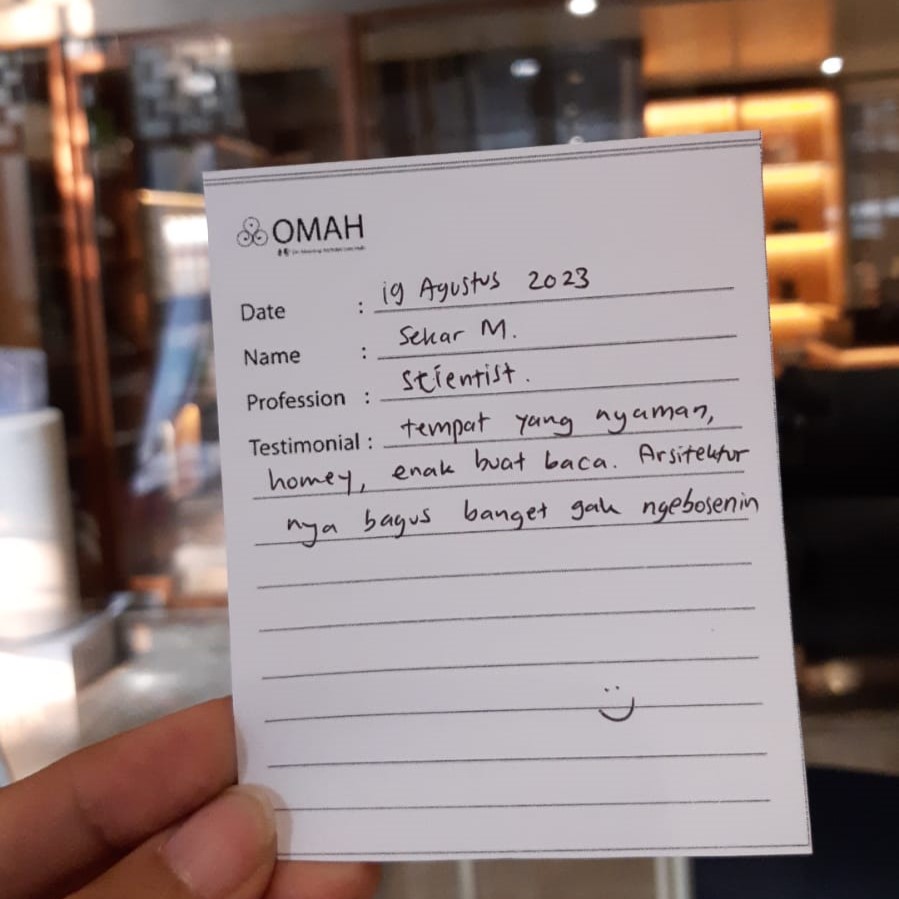 OMAH
Date : 19 Agustus 2023
Name : Sekar M.
Profession : Scientist.
Testimonial : tempat yang nyaman,
homey, enak buat baca. Arsitektur
nya bagus banget gak ngebosenin